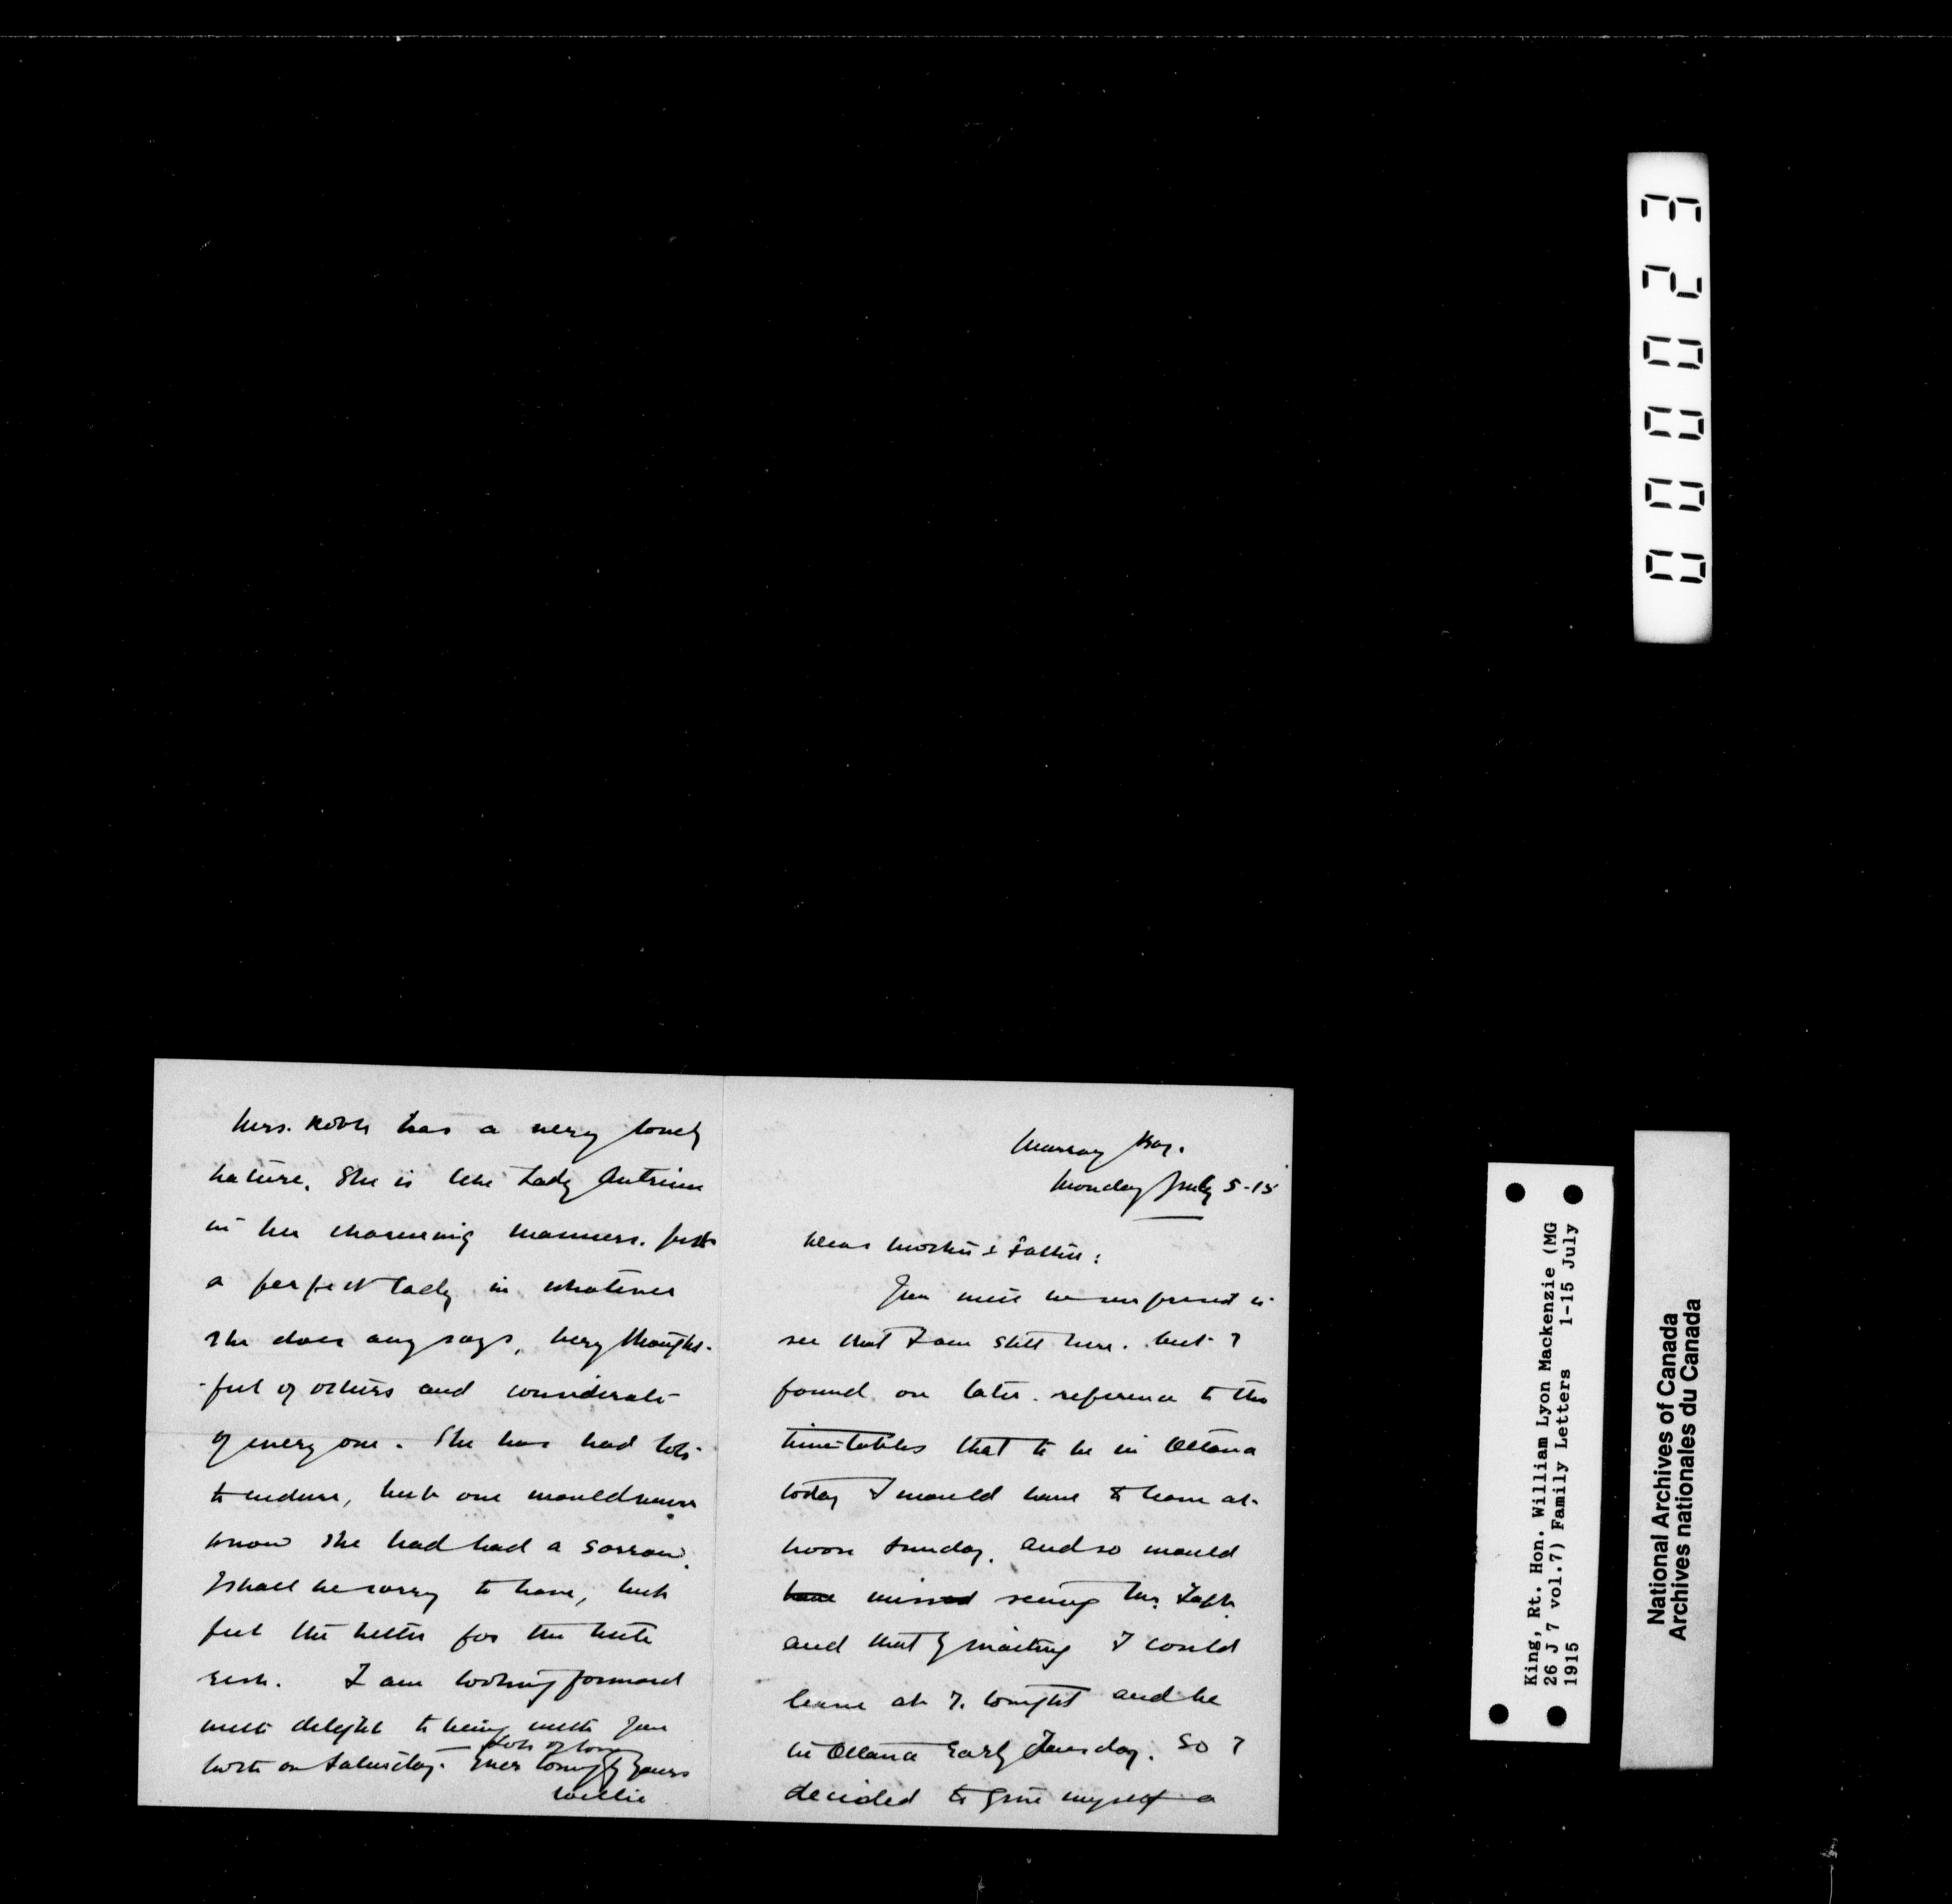 Mrs. Robb has a very lovely
nature. She is like Lady Antrim
in her charming manners. Just
a perfect lady in whatever
she does any says, very thought-
-ful of others and considerate
of every one. She has had lots
to endure, but one would never
know she had had a sorrow.
I shall be sorry to leave, but
feel the better for the little
rest. I am looking forward
with delight to being with you
both on Saturday. Lots of love
Ever lovingly yours
Willie
Murray Bay.
Monday July 5-15
Dear Mother & Father:
You will be surprised to
see that I am still here. but I
found on later reference to the
time-tables that to be in Ottawa
today I would have to leave at
noon Sunday. and so would
have missed seeing Mr. Taft.
and that by waiting I could
leave at 7. tonight and be
in Ottawa early Tuesday. So I
decided to give myself a
King, Rt. Hon. William Lyon Mackenzie (MG
26 J 7 vol.7) Family Letters 1-15 July
1915
National Archives of Canada
Archives nationales du Canada
000023